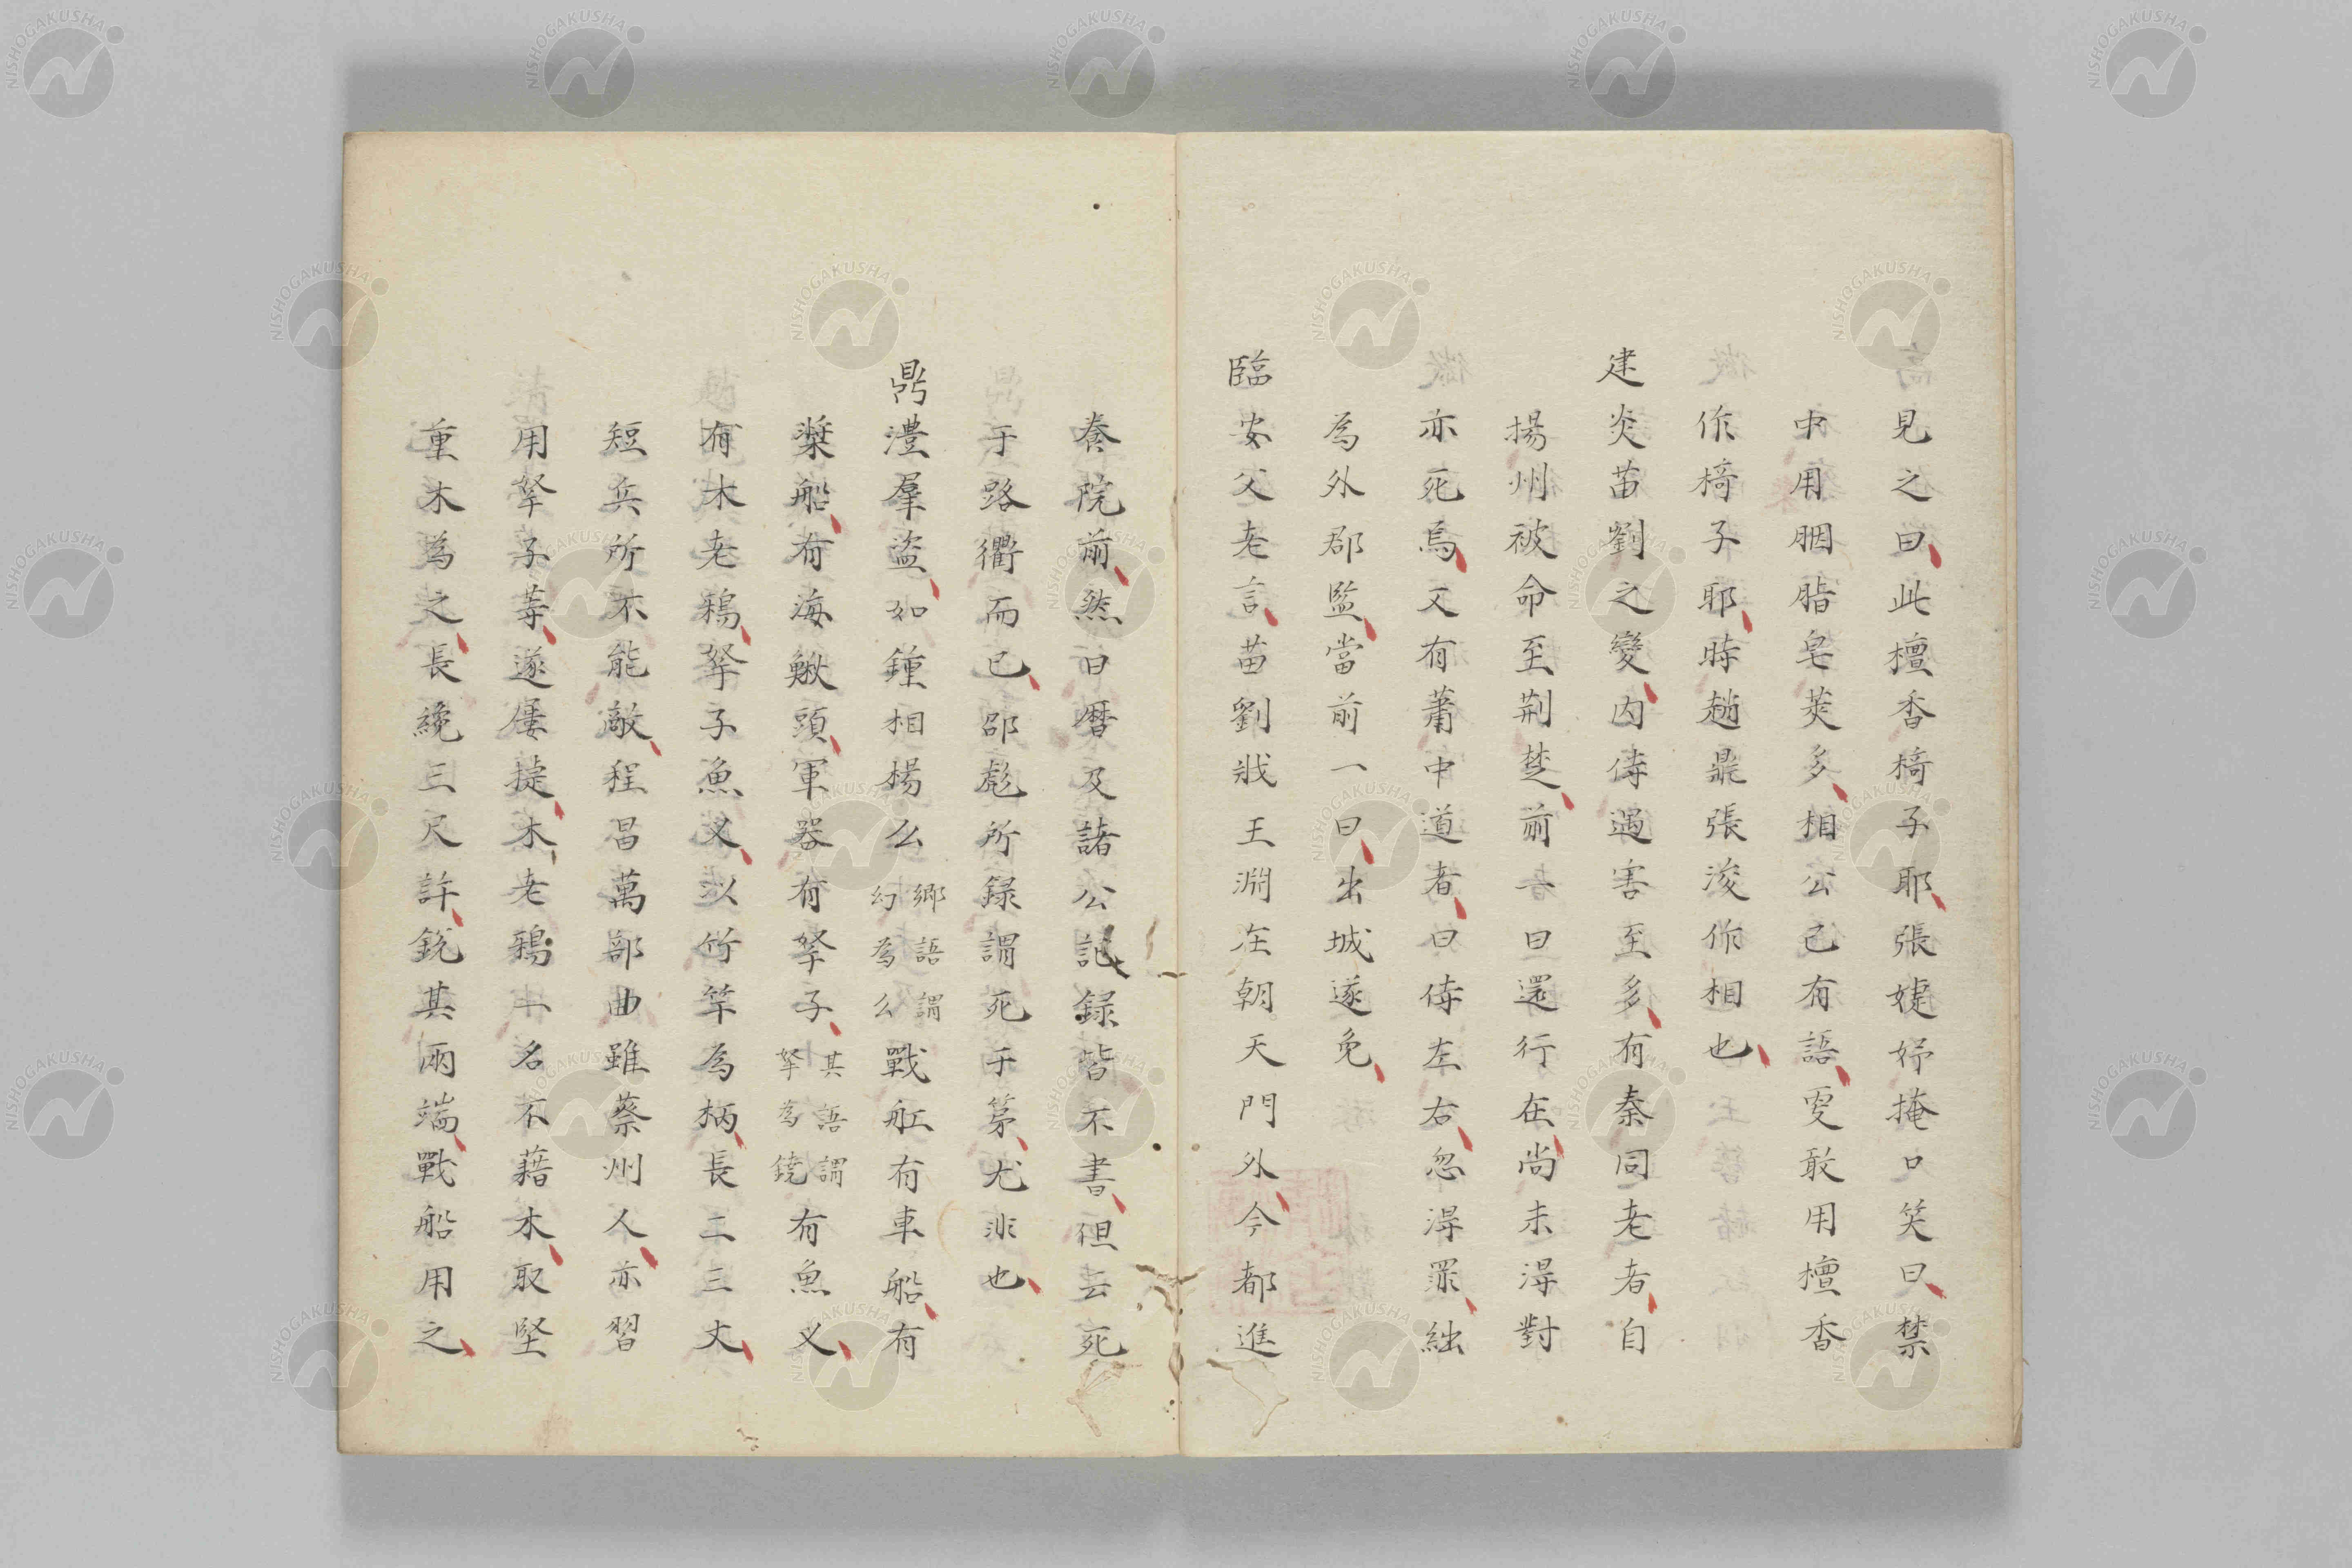 見之曰此檀香椅子耶張婕妤掩口笑曰禁
中用胭脂皂莢多相公已有語更敢用檀香
作椅子耶時趙鼎張浚作相也
建炎苗劉之變内侍遇害至多有秦同老者自
揚州被命至荆楚前一日還行在尚未得對
亦死焉又有蕭中道者日侍左右忽得罪絀
為外郡監當前一日出城遂免
臨安父老言苗劉戕王淵在朝天門外今都進
奏院前然日曆及諸公記録皆不書但云死
于路衢而已邵彪所録謂死于第尤非也
鼎澧羣盜如鍾相楊么鄉語謂幻為么戰舡有車船有
槳船有海鰍頭軍器有拏子其語謂拏為鐃有魚叉
有木老鵶拏子魚叉以竹竿為柄長二三丈
短兵所不能敵程昌萬部曲雖蔡州人亦習
用拏子等遂屢捷木老鵶一名不藉木取堅
重木為之長纔三尺許銳其兩端戰船用之
NISHOGAKUSHA